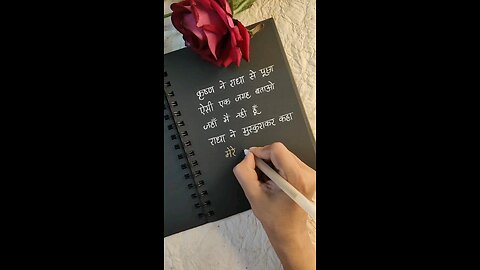 कृष्ण ने राधा से पूछा
ऐसी एक जगह बताओ
जहाँ मैं नही हूँ
राधा ने मुस्कुराकर कहा
मेरे